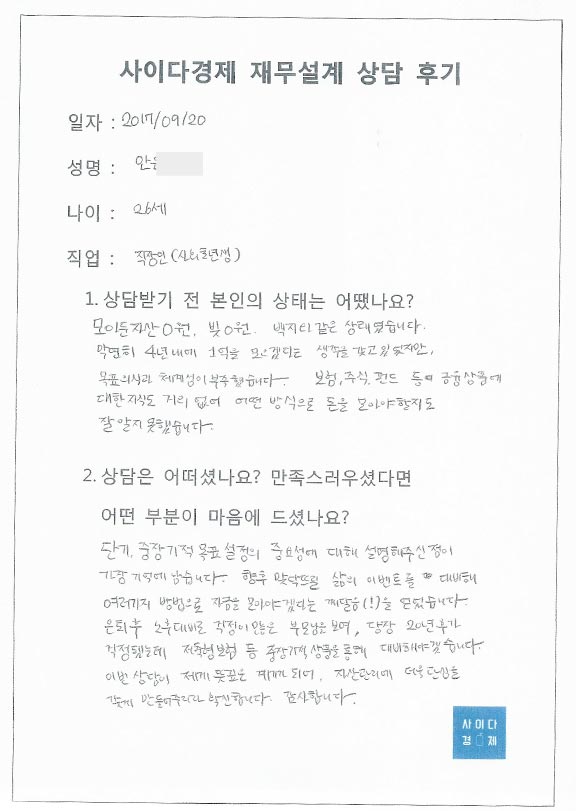 사이다경제 재무설계 상담 후기
일자 : 2017/09/20
성명 : 안
나이 : 26세
직업 : 직장인 (사회초년생)
1. 상담받기 전 본인의 상태는 어땠나요?
모아둔자산 0원, 빚 0원. 백지와 같은 상태였습니다.
막연히 4년내에 1억을 모으겠다는 생각을 갖고 있었지만,
목표의식과 체계성이 부족했습니다. 보험, 주식, 펀드 등의 금융상품에
대한 지식도 거의 없어 어떤 방식으로 돈을 모아야 할지도
잘 알지 못했습니다.
2. 상담은 어떠셨나요? 만족스러우셨다면
어떤 부분이 마음에 드셨나요?
단기, 중장기적 목표 설정의 중요성에 대해 설명해주신 점이
가장 기억에 남습니다. 향후 맞닥뜨릴 삶의 이벤트를 대비해
여러가지 방법으로 자금을 모아야겠다는 깨달음(!)을 얻었습니다.
은퇴후 노후대비로 걱정이 많은 부모님을 보며, 당장 20년 후가
걱정됐는데 저축형보험 등 중장기적 상품을 통해 대비해야겠습니다.
이번 상담이 제게 뜻깊은 계기가 되어, 자산관리에 더욱 관심을
갖게 만들어주리라 확신합니다. 감사합니다.
사이다
경제